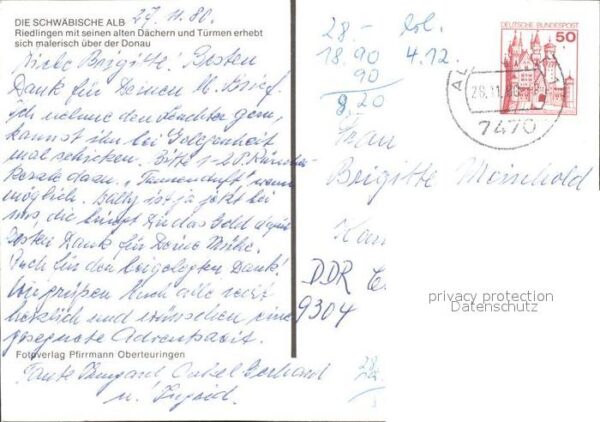 DIE SCHWÄBISCHE ALB
Riedlingen mit seinen alten Dächern und Türmen erhebt
sich malerisch über der Donau
27.11.80.
Liebe Brigitte! Besten
Dank für Deinen lb. Brief.
Ich nehme den Leuchter gern,
kannst ihn bei Gelegenheit
mal schicken. Bitte 1-2 P. Räucher-
kerzle dazu. "Tannenduft" wenn
möglich. Sally ist ja jetzt bei
uns die bringt Dir das Geld dafür
Besten Dank für Deine Mühe.
Auch für den beigelegten Dank!
Wir grüßen Euch alle recht
herzlich und wünschen eine
gesegnete Adventszeit.
Fotoverlag Pfirrmann Oberteuringen
Tante Irmgard Onkel Gerhard
u. Ingrid.
28.-
18.90
90
9.20
4.12.
DEUTSCHE BUNDESPOST
50
28.11.80
7470
Frau
Brigitte Meinhold
DDR
9304
privacy protection
Datenschutz
28.